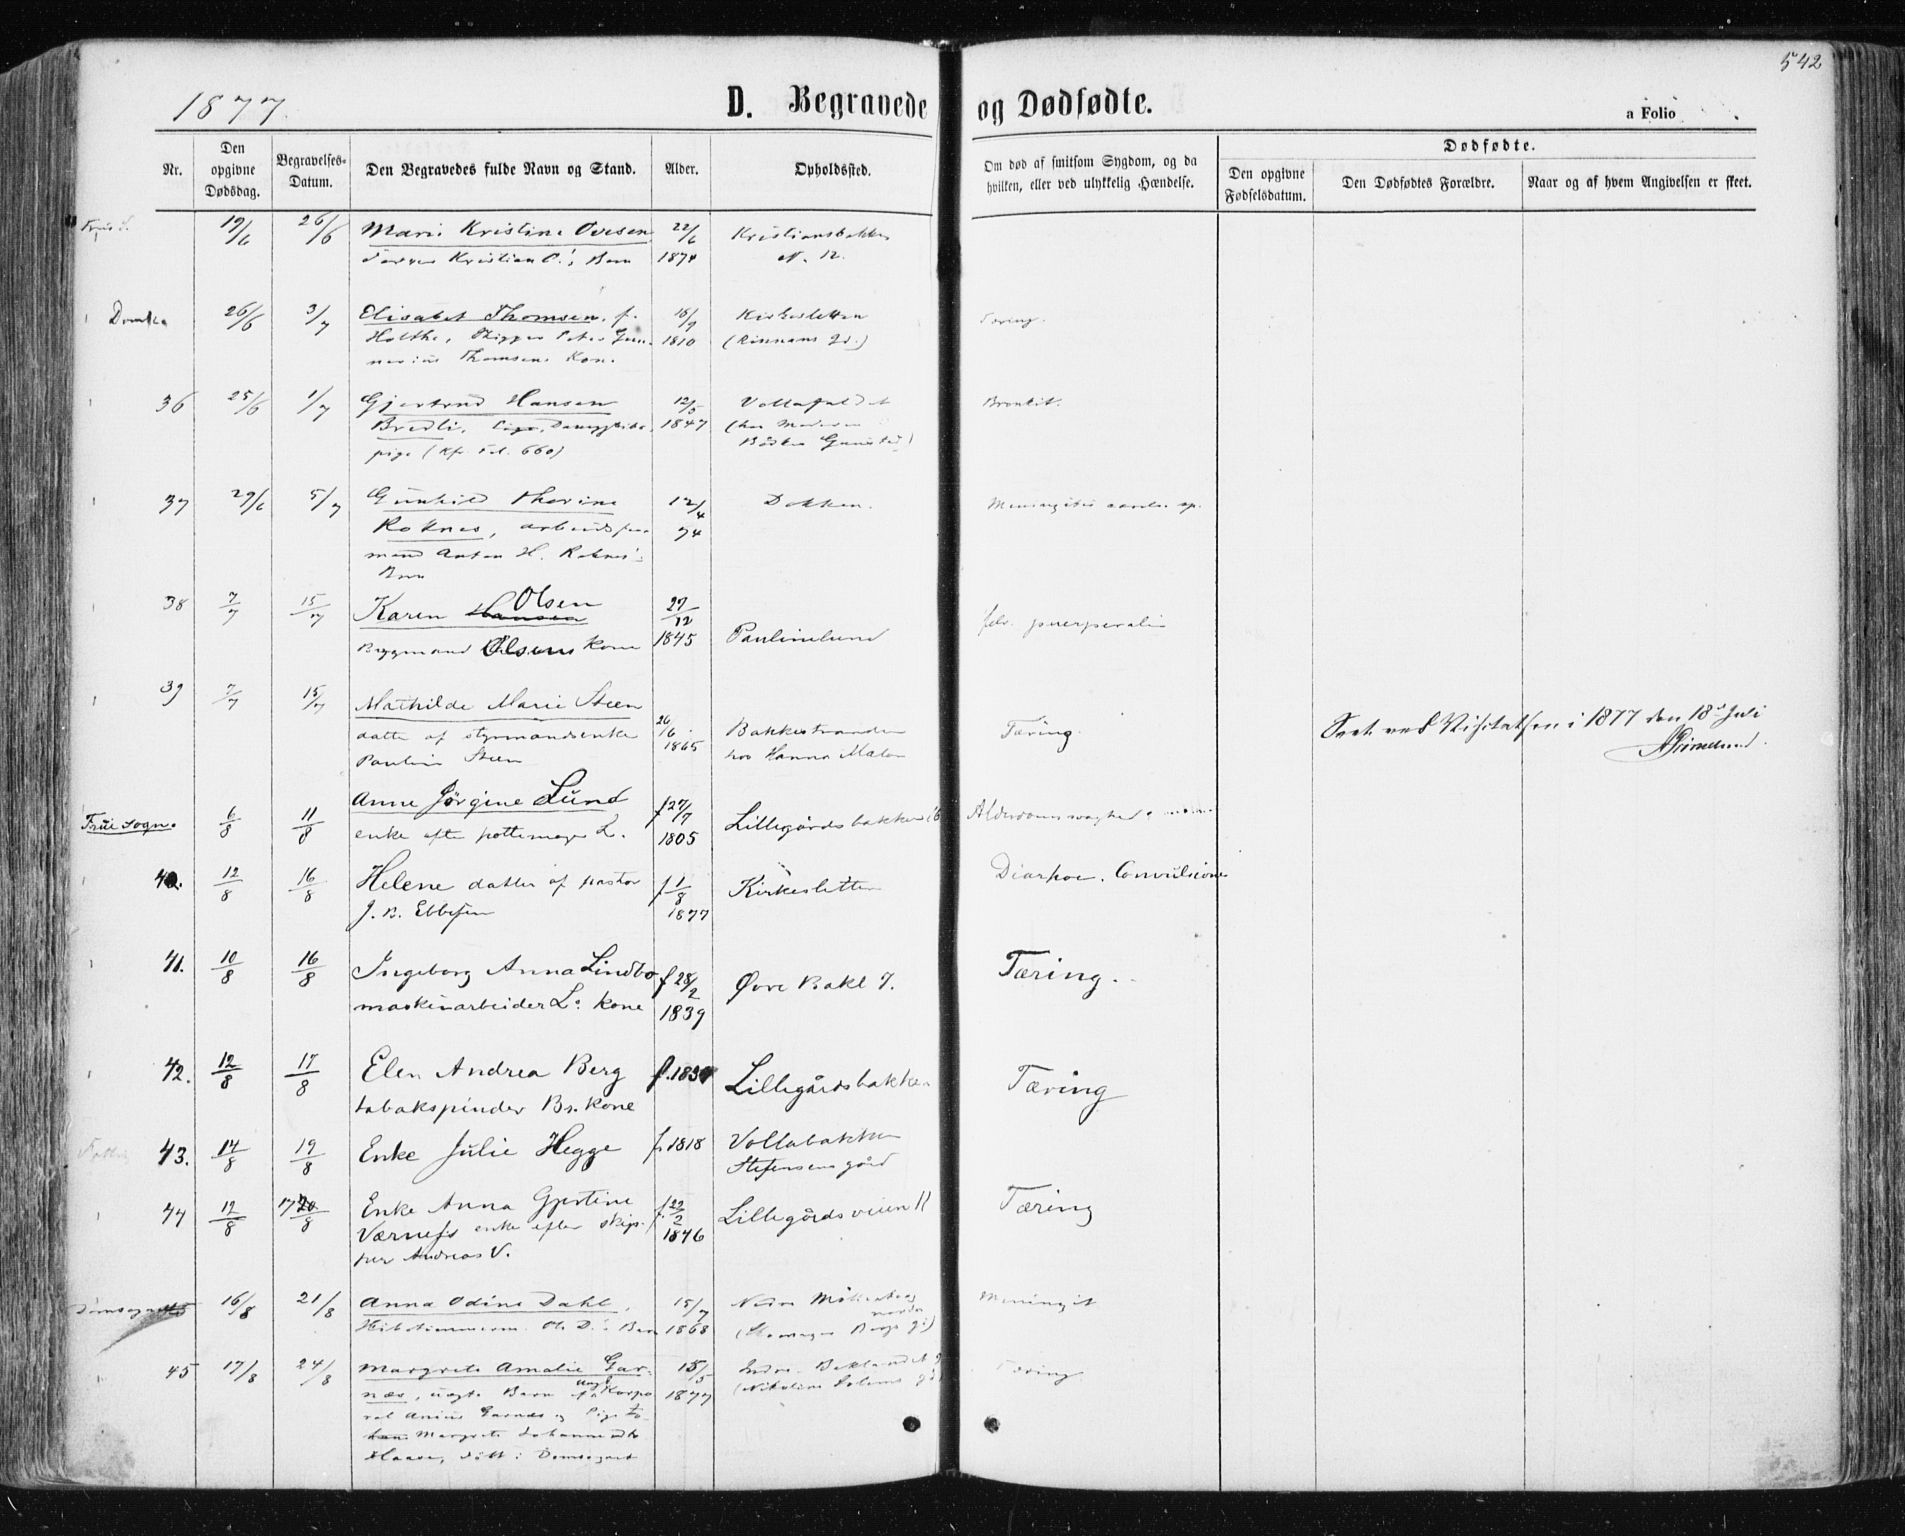 542
1877.
D. Begravede og Dødfødte.
a Folio
Nr.
Den opgivne Dødsdag.
Begravelses-Datum.
Den Begravedes fulde Navn og Stand.
Alder.
Opholdssted.
Om død af smitsom Sygdom, og da hvilken, eller ved ulykkelig Hændelse.
Dødfødte.
Den opgivne Fødselsdatum.
Den Dødfødtes Forældre.
Naar og af hvem Angivelsen er skeet.
19/6 26/6 Marie Kristine Oversen 22/6 Kristiansbakken
Kristian O.'s Barn 1874 N. 12.
Domk. 26/6 3/7 Elisabet Thomsen, f. 18/9 Kirkesletten Tæring.
Holthe, Peter Gun- 1810 (Rinnans gd.)
nerius Thomsens Kone.
36 25/6 1/7 Gjertrud Hansen 12/5 Vollafaldet Bronkit.
Bredli, 1847 (hos
pige (Kfr. Fol. 660)
37 29/6 5/7 Gunhild Thorine 12/4 Dokken. Meningitis
Roknes, arbeids 74
mand Anton H. Roknes's
Barn
38 7/7 15/7 Karen Hansen Olsen 27/12 febr. puerperalis
Byggmand Olsens kone 1845 Paulinelund
39 7/7 15/7 Mathilde Marie Steen
datter af styrmandsenke 26/6 1865 Bakkestranden Tæring.
Pauline Steen hos Hanna
Seet ved Visitatsen i 1877 den 18de Juli
Frue sogn. 6/8 11/8 Anne Jörgine Lund f 27/7 Lillegårdsbakken 16 Alderdomssvaghed
enke efter pottemager L. 1805
40. 12/8 16/8 Helene datter af pastor f 1/8 Kirkesletten Diarhoe. Convulsione
J. B. Ebbesen 1877
41. 10/8 16/8 Ingeborg Anna Lindbo f 28/2 Øvre Bakl 7. Tæring.
maskinarbeider L.s kone 1839
42. 12/8 17/8 Elen Andrea Berg Lillegårdsbakken Tæring
tobakspinder Bs. kone
43. 14/8 19/8 Enke Julie Hegge f. 1818 Vollabakken
Stefensens gård
44 12/8 17/8 Enke Anna Gjertine f. 22/2 Lillegårdsveien 11 Tæring
Værnefs enke efter skip- 1846
per Andreas V.
Domsognet 16/8 21/8 Anna Odine Dahl, 15/7 Nedre Meningit
Ole D.'s Barn 1868
45 17/8 24/8 Margrete Amalie Gar- 15/5 Indre Baklandet Tæring
næs, uægte Barn af Ungk. Korpo- 1877
ral Anius Garnæs og Pige Jo-
Margrete Johannesd.
Haave, født i Domsognet